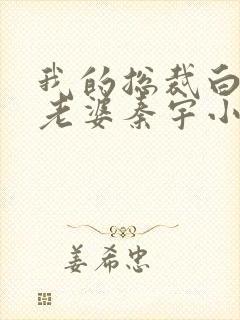 我的总裁白
老婆秦宇小
姜希忠